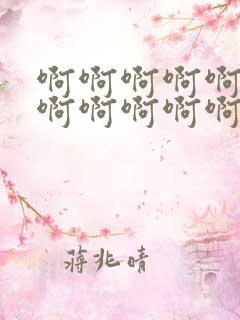 啊啊啊啊啊
啊啊啊啊啊
蒋兆晴